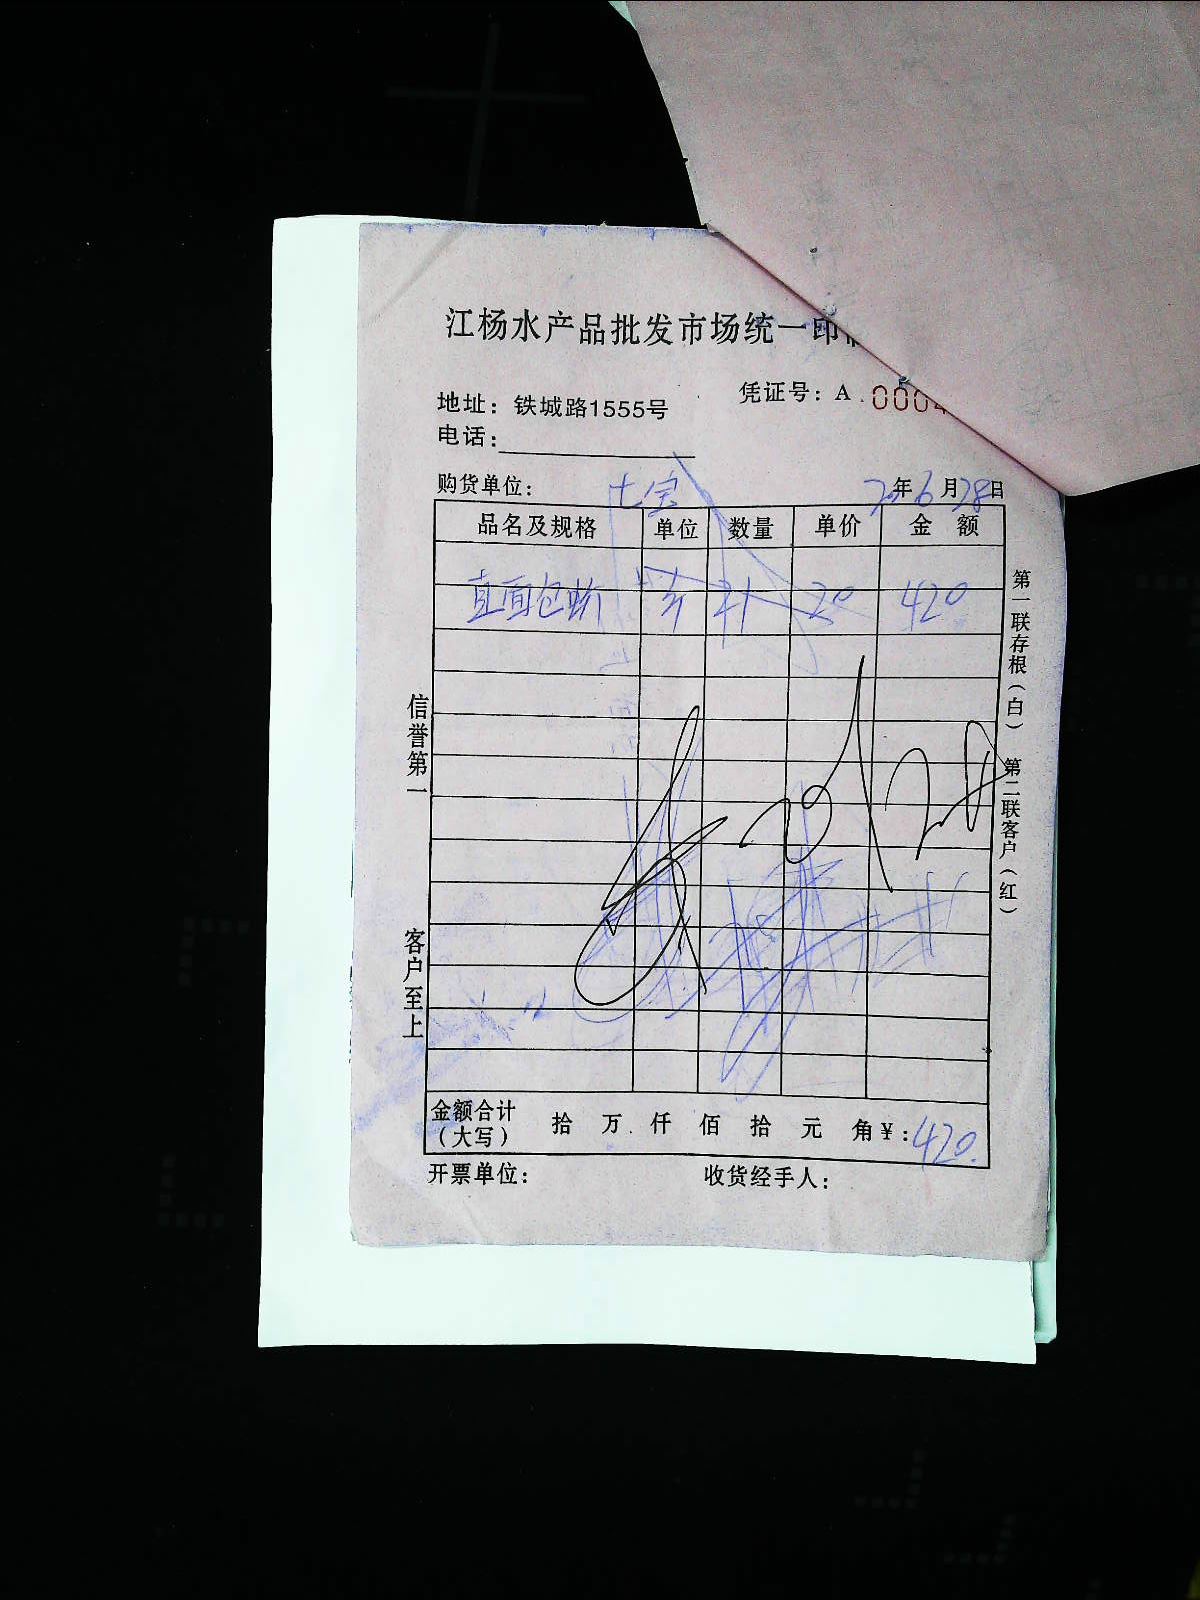 江杨水产品批发市场统一印
地址：铁城路1555号
凭证号：A.0004
电话：
购货单位：七宝
年6月28日
品名及规格 单位 数量 单价 金额
直面包 斤 21 20 420
信誉第一
客户至上
第一联存根（白） 第二联客户（红）
金额合计（大写） 拾 万 仟 佰 拾 元 角 ¥：420.
开票单位： 收货经手人：